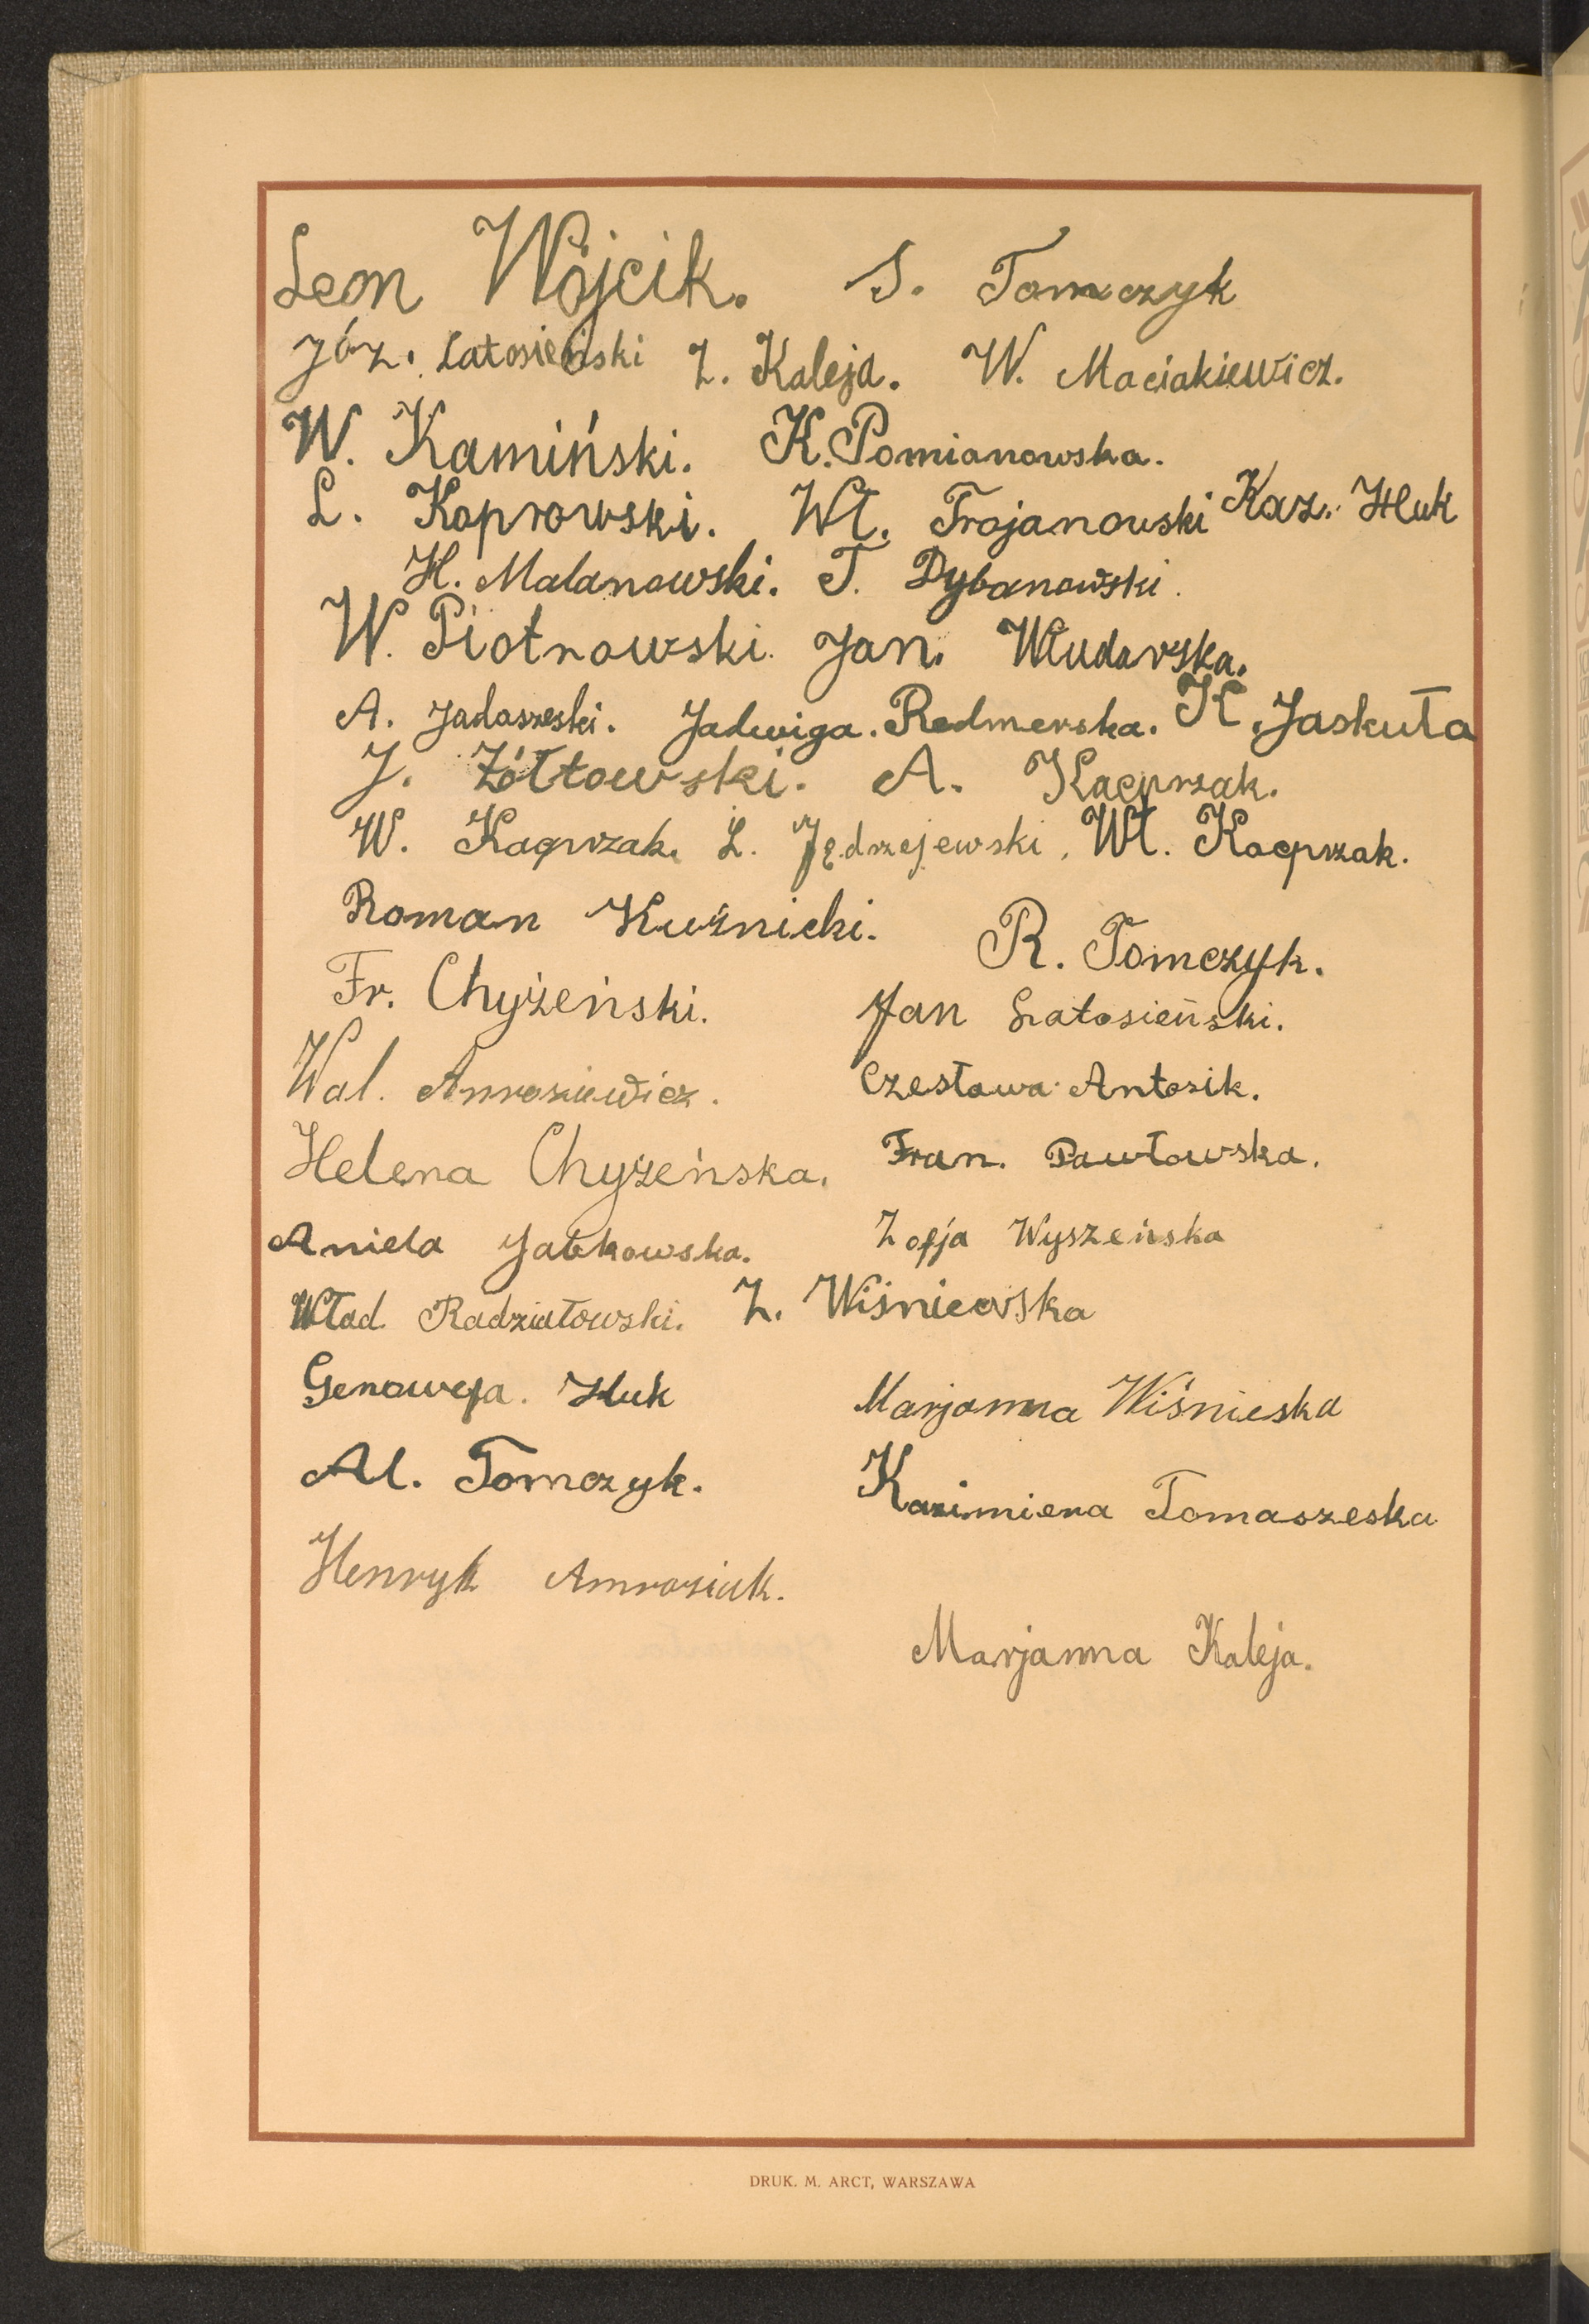 Leon Wójcik. S. Tomczyk
Józ. Latosieński Z. Kaleja. W. Maciakiewicz.
W. Kamiński. K. Pomianowska.
L. Koprowski. Wł. Trojanowski Kaz. Huk
H. Malanowski. T. Dybanowski.
W. Piotrowski. Jan. Włudarska.
A. Jadaszeski. Jadwiga. Redmerska. K. Jaskuła
J. Żółtowski. A. Kacprzak.
W. Kacprzak. L. Jędrzejewski, Wł. Kacprzak.
Roman Kuźnicki. R. Tomczyk.
Fr. Chyżeński. Jan Latosieński.
Wal. Amroziewicz. Czesława Antosik.
Helena Chyżeńska. Fran. Pawłowska.
Aniela Jabkowska. Zofja Wyszeńska
Wład. Radziałowski. Z. Wiśniewska
Genowefa. Huk Marjanna Wiśnieska
Al. Tomczyk. Kazimiera Tomaszeska
Henryk Amroziak.
Marjanna Kaleja.
DRUK. M. ARCT, WARSZAWA